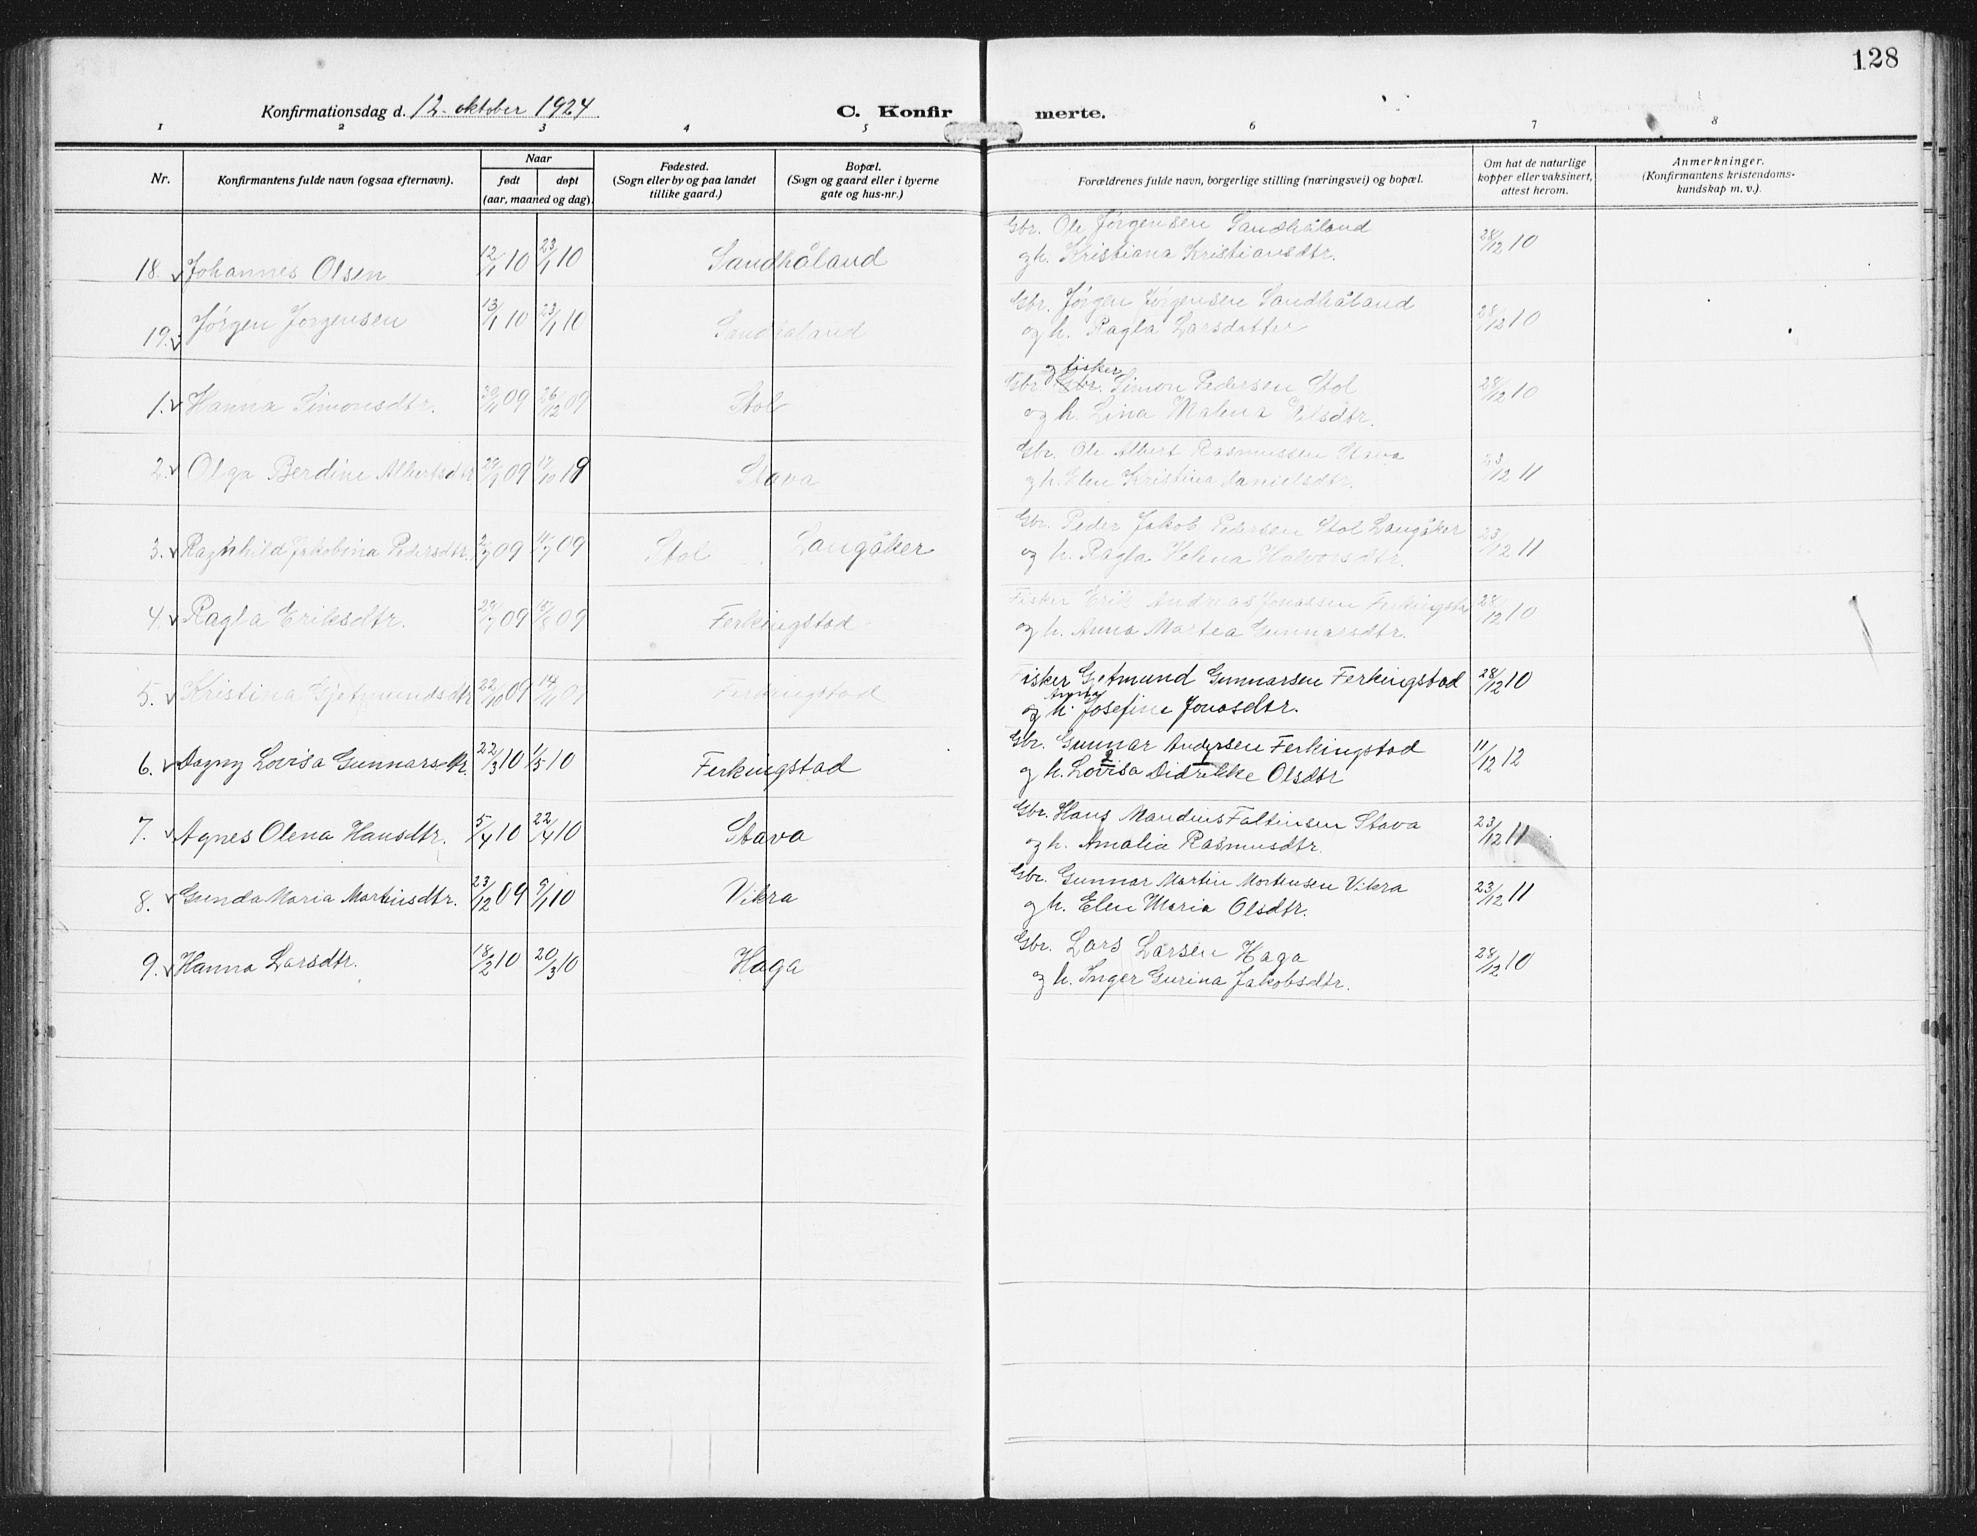 128
Konfirmationsdag d. 12. oktober 1924 C. Konfir merte.
1 2 3 4 5 6 7 8
Nr.
Konfirmantens fulde navn (ogsaa efternavn).
Naar
født døpt
(aar, maaned og dag).
Fødested.
(Sogn eller by og paa landet
tillike gaard.)
Bopæl.
(Sogn og gaard eller i byerne
gate og hus-nr.)
Forældrenes fulde navn, borgerlige stilling (næringsvei) og bopæl.
Om hat de naturlige
kopper eller vaksinert,
attest herom.
Anmerkninger.
(Konfirmantens kristendoms-
kundskap m. v.).
Gbr. Ole Jørgensen Sandhåland
18. Johannes Olsen 12/1 10 23/1 10 Sandhåland og h. Kristiana Kristiansdtr. 28/12 10
Gbr. Jørgen Jørgensen Sandhåland
19. Jørgen Jørgensen 13/1 10 23/1 10 Sandhåland og h. Ragla Larsdatter 28/12 10
og fisker
Gbr. Simon Pedersen Stol
1. Hanna Simonsdtr. 09 26/12 09 Stol og h. Lina Malena 28/12 10
Gbr. Ole Albert Rasmussen Stava
2. Olga Berdine Albertsdtr 09 Stava og h. Elen Kristina Danielsdtr. 23/12 11
Gbr. Peder Jakob Pedersen Stol Langåker
3. Ragnhild Jakobina Pedersdtr. 09 11/7 09 Stol Langåker og h. Ragla Helena Halvorsdtr. 23/12 11
Fisker Erik Andreas Jonassen Ferkingstad
4. Ragla Eriksdtr. 09 15/8 09 Ferkingstad og h. Anna Martea Gunnarsdtr. 28/12 10
Fisker Gjetmund Gunnarsen Ferkingstad
5. Kristina Gjetmundsdtr 22/10 09 14/11 09 Ferkingstad og h. Josefine Jonasdtr. 28/12 10
Gbr. Gunnar Andersen Ferkingstad
2 1
6. Dagny Lovisa Gunnarsdtr. 22/3 10 1/5 10 Ferkingstad og h. Lovisa Didrikke Olsdtr 11/12 12
Gbr. Hans Mandius Faltinsen Stava
7. Agnes Olena Hansdtr. 5/4 10 22/4 10 Stava og h. Amalia Rasmusdtr. 23/12 11
Gbr. Gunnar Martin Mortensen Vikra
8. Gunda Maria Martinsdtr. 23/12 09 9/1 10 Vikra og h. Elen Maria Olsdtr. 23/12 11
Gbr. Lars Larsen Haga
9. Hanna Larsdtr. 18/2 10 20/3 10 Haga og h. Inger Gurina Jakobsdtr. 28/12 10